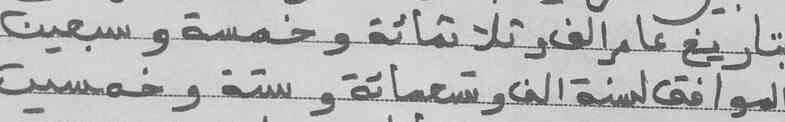 بتاريخ عام الف وتلاتمائة وخمسة وسبعين
الموافق لسنة الف وتسعمائة وستة وخمسين